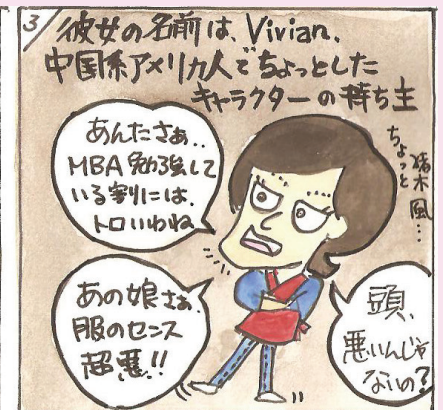 3
彼女の名前は、Vivian.
中国系アメリカ人でちょっとした
キャラクターの持ち主
あんたさぁ..
MBA勉強して
いる割には、
トロいわね
ちょっと
猪木風…
あの娘さぁ、
服のセンス
超悪!!
頭、
悪いんじゃ
ないの?